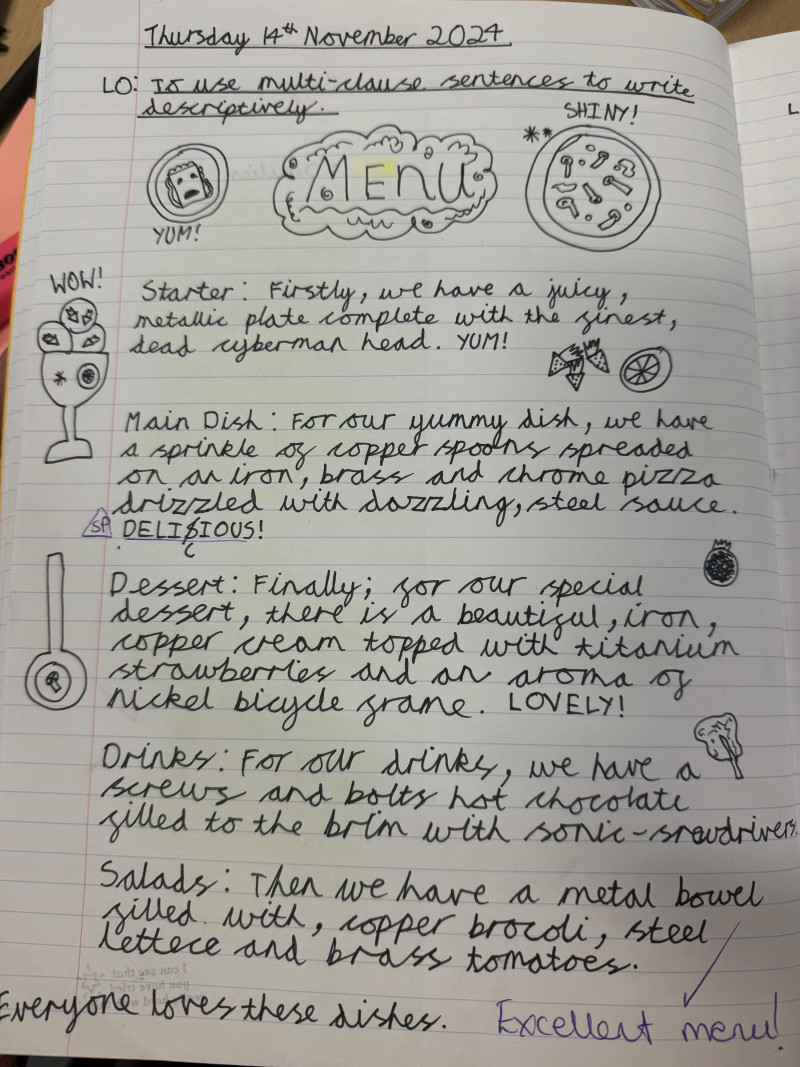 Thursday 14th November 2024
LO: To use multi-clause sentences to write
descriptively.
SHINY!
MEnU
YUM!
WOW!
Starter: Firstly, we have a juicy,
metallic plate complete with the finest,
dead cyberman head. YUM!
Main Dish: For our yummy dish, we have
a sprinkle of copper spoons spreaded
on an iron, brass and chrome pizza
drizzled with dazzling, steel sauce.
SP DELISIOUS!
c
Dessert: Finally; for our special
dessert, there is a beautiful, iron,
copper cream topped with titanium
strawberries and an aroma of
nickel bicycle frame. LOVELY!
Drinks: For our drinks, we have a
screws and bolts hot chocolate
filled to the brim with sonic-srewdrivers.
Salads: Then we have a metal bowel
filled with, copper brocoli, steel
lettece and brass tomatoes.
Everyone loves these dishes.
Excellent menu!
L